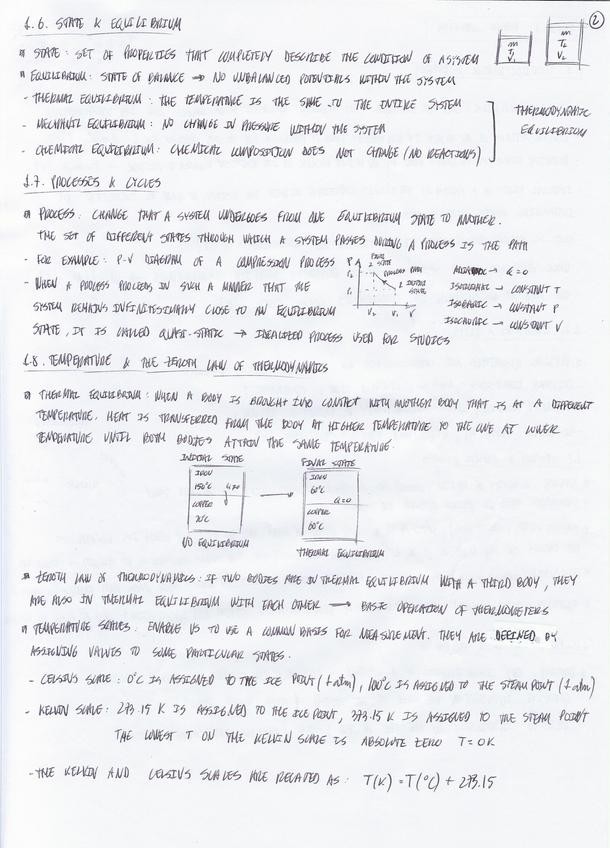 2
1.6. STATE & EQUILIBRIUM
STATE: SET OF PROPERTIES THAT COMPLETELY DESCRIBE THE CONDITION OF A SYSTEM
m T1 V1
m T2 V2
EQUILIBRIUM: STATE OF BALANCE → NO UNBALANCED POTENTIALS WITHIN THE SYSTEM
- THERMAL EQUILIBRIUM: THE TEMPERATURE IS THE SAME IN THE ENTIRE SYSTEM
- MECHANIC EQUILIBRIUM: NO CHANGE IN PRESSURE WITHIN THE SYSTEM
- CHEMICAL EQUILIBRIUM: CHEMICAL COMPOSITION DOES NOT CHANGE (NO REACTIONS)
THERMODYNAMIC
EQUILIBRIUM
1.7. PROCESSES & CYCLES
PROCESS: CHANGE THAT A SYSTEM UNDERGOES FROM ONE EQUILIBRIUM STATE TO ANOTHER.
THE SET OF DIFFERENT STATES THROUGH WHICH A SYSTEM PASSES DURING A PROCESS IS THE PATH
- FOR EXAMPLE: P-V DIAGRAM OF A COMPRESSION PROCESS
- WHEN A PROCESS PROCEEDS IN SUCH A MANNER THAT THE
SYSTEM REMAINS INFINITESIMALLY CLOSE TO AN EQUILIBRIUM
STATE, IT IS CALLED QUASI-STATIC → IDEALIZED PROCESS USED FOR STUDIES
P
FINAL
2 STATE
P2
PROCESS PATH
P1
1 INITIAL
STATE
V2 V1 V
ADIABATIC → Q=0
ISOTHERMIC → CONSTANT T
ISOBARIC → CONSTANT P
ISOCHORIC → CONSTANT V
1.8. TEMPERATURE & THE ZEROTH LAW OF THERMODYNAMICS
THERMAL EQUILIBRIUM: WHEN A BODY IS BROUGHT INTO CONTACT WITH ANOTHER BODY THAT IS AT A DIFFERENT
TEMPERATURE, HEAT IS TRANSFERRED FROM THE BODY AT HIGHER TEMPERATURE TO THE ONE AT LOWER
TEMPERATURE UNTIL BOTH BODIES ATTAIN THE SAME TEMPERATURE.
INITIAL STATE
IRON
150°C
COPPER
20°C
NO EQUILIBRIUM
FINAL STATE
IRON
60°C
Q=0
COPPER
60°C
THERMAL EQUILIBRIUM
ZEROTH LAW OF THERMODYNAMICS: IF TWO BODIES ARE IN THERMAL EQUILIBRIUM WITH A THIRD BODY, THEY
ARE ALSO IN THERMAL EQUILIBRIUM WITH EACH OTHER → BASIC OPERATION OF THERMOMETERS
TEMPERATURE SCALES: ENABLE US TO USE A COMMON BASIS FOR MEASUREMENT. THEY ARE DEFINED BY
ASSIGNING VALUES TO SOME PARTICULAR STATES.
- CELSIUS SCALE: 0°C IS ASSIGNED TO THE ICE POINT (1 atm), 100°C IS ASSIGNED TO THE STEAM POINT (1 atm)
- KELVIN SCALE: 273.15 K IS ASSIGNED TO THE ICE POINT, 373.15 K IS ASSIGNED TO THE STEAM POINT
THE LOWEST T ON THE KELVIN SCALE IS ABSOLUTE ZERO T=0K
- THE KELVIN AND CELSIUS SCALES ARE RELATED AS: T(K) = T(°C) + 273.15